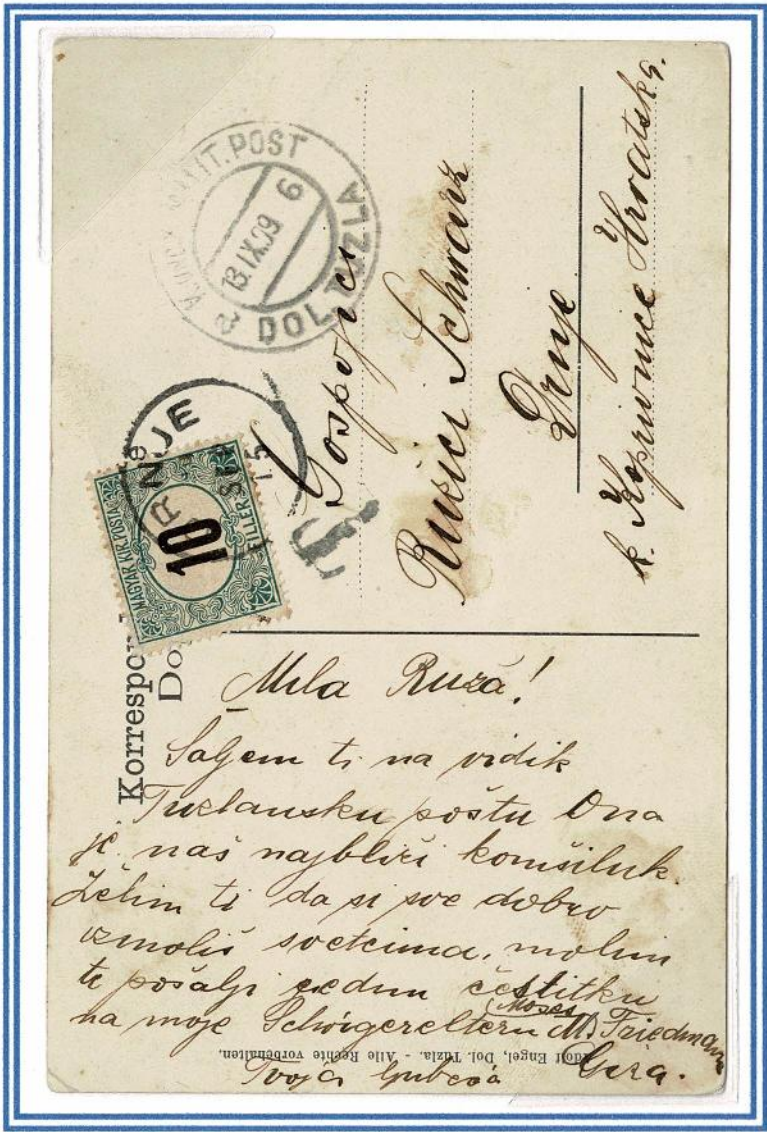 K.UND K. MILIT.POST
13 IX.09 6
DOL. TUZLA
MAGYAR KIR. POSTA
10
FILLÉR
DRNJE
T.
Korrespon
Do
Gospojici
Ružici Schwarz
Drnje
k. Koprivnice Hrvatska.
Mila Ruža!
Šaljem ti na vidik
Tuzlansku poštu Ona
je naš najbliži komšiluk.
Želim ti da si sve dobro
izmoliš svetcima, molim
te pošalji jednu čestitku
(Moses
na moje Schwigereltern M. Friedmann
Adolf Engel, Dol. Tuzla. - Alle Rechte vorbehalten.
Tvoja Giza.